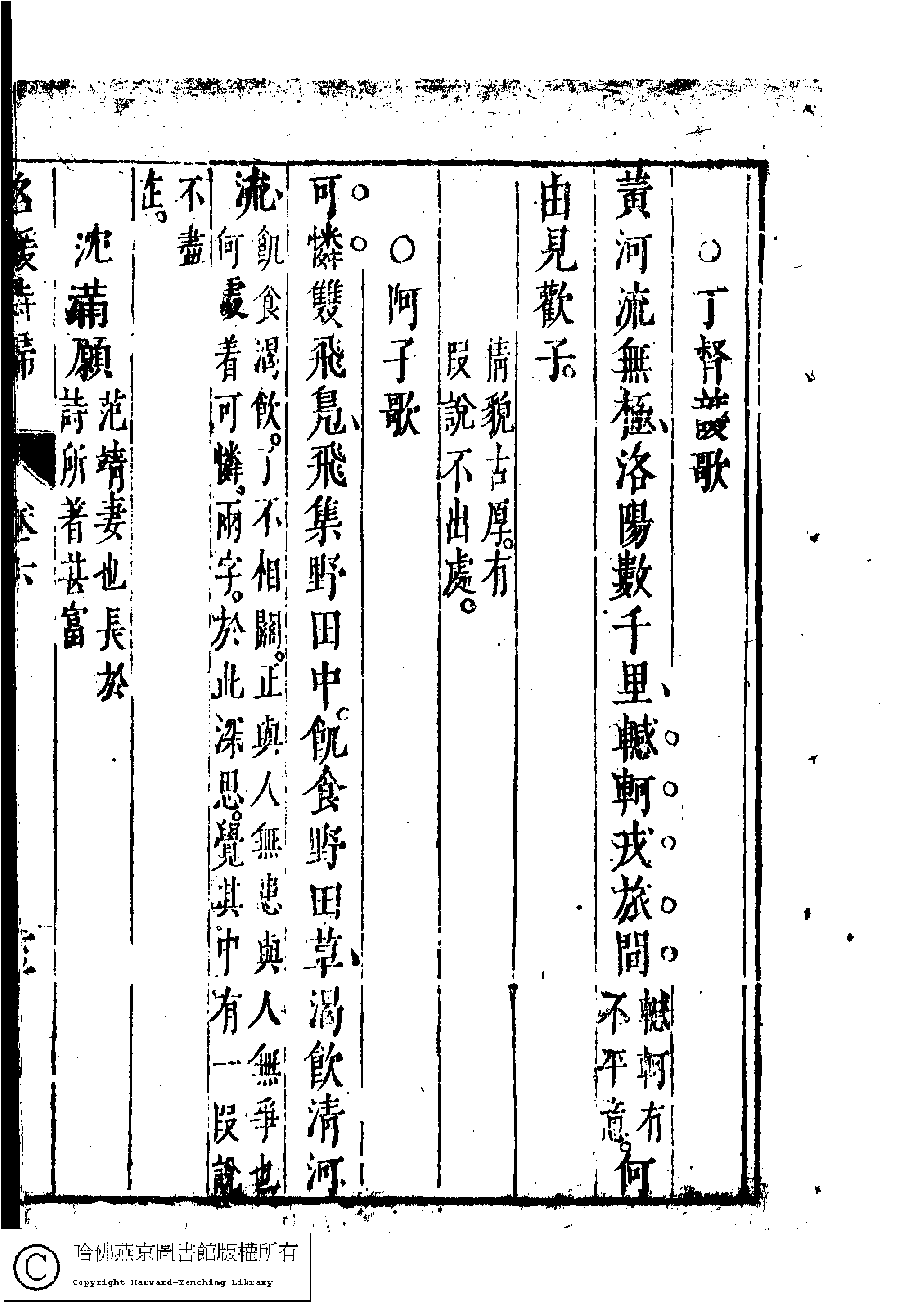 ○丁督護歌
黃河流無極洛陽數千里轗軻戎旅間轗軻有不平意何
由見歡子
情貌古厚有
段說不出處
○阿子歌
可憐雙飛鳧飛集野田中飢食野田草渴飲清河
流飢食渴飲了不相關正與人無患與人無爭也
何處着可憐兩字於此深思覺其中有一段說
不盡
在
沈滿願范靖妻也長於
詩所著甚富
名媛詩歸 卷六
哈佛燕京圖書館版權所有
Copyright Harvard-Yenching Library